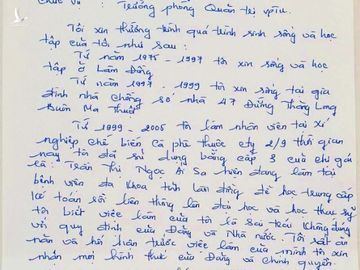 Chức vụ : Trưởng phòng Quản trị VPTU.
Tôi xin tường trình quá trình sinh sống và học
tập của tôi như sau :
Từ năm 1975 - 1997 tôi xin sống và học
tập ở Lâm Đồng
Từ năm 1997 - 1999 tôi xin sống tại gia
đình nhà chồng số nhà 47 Đường Thăng Long
Buôn Ma Thuột
Từ 1999 - 2005 tôi làm nhân viên tại xí
nghiệp chế biến Cà phê thuộc cty 2/9 thời gian
này tôi đã sử dụng bằng cấp 3 của chị gái
là : Trần Thị Ngọc Ái Sa hiện đang làm tại
bệnh viện đa khoa tỉnh Lâm đồng để học trung cấp
kế toán rồi liên thông lên đại học và học thạc sỹ
tôi biết việc làm của tôi là sai trái không đúng
với quy định của Đảng và Nhà nước. Tôi rất ăn
năn và hối hận trước việc làm của mình tôi xin
nhận mọi hình thức của Đảng và chính quyền.